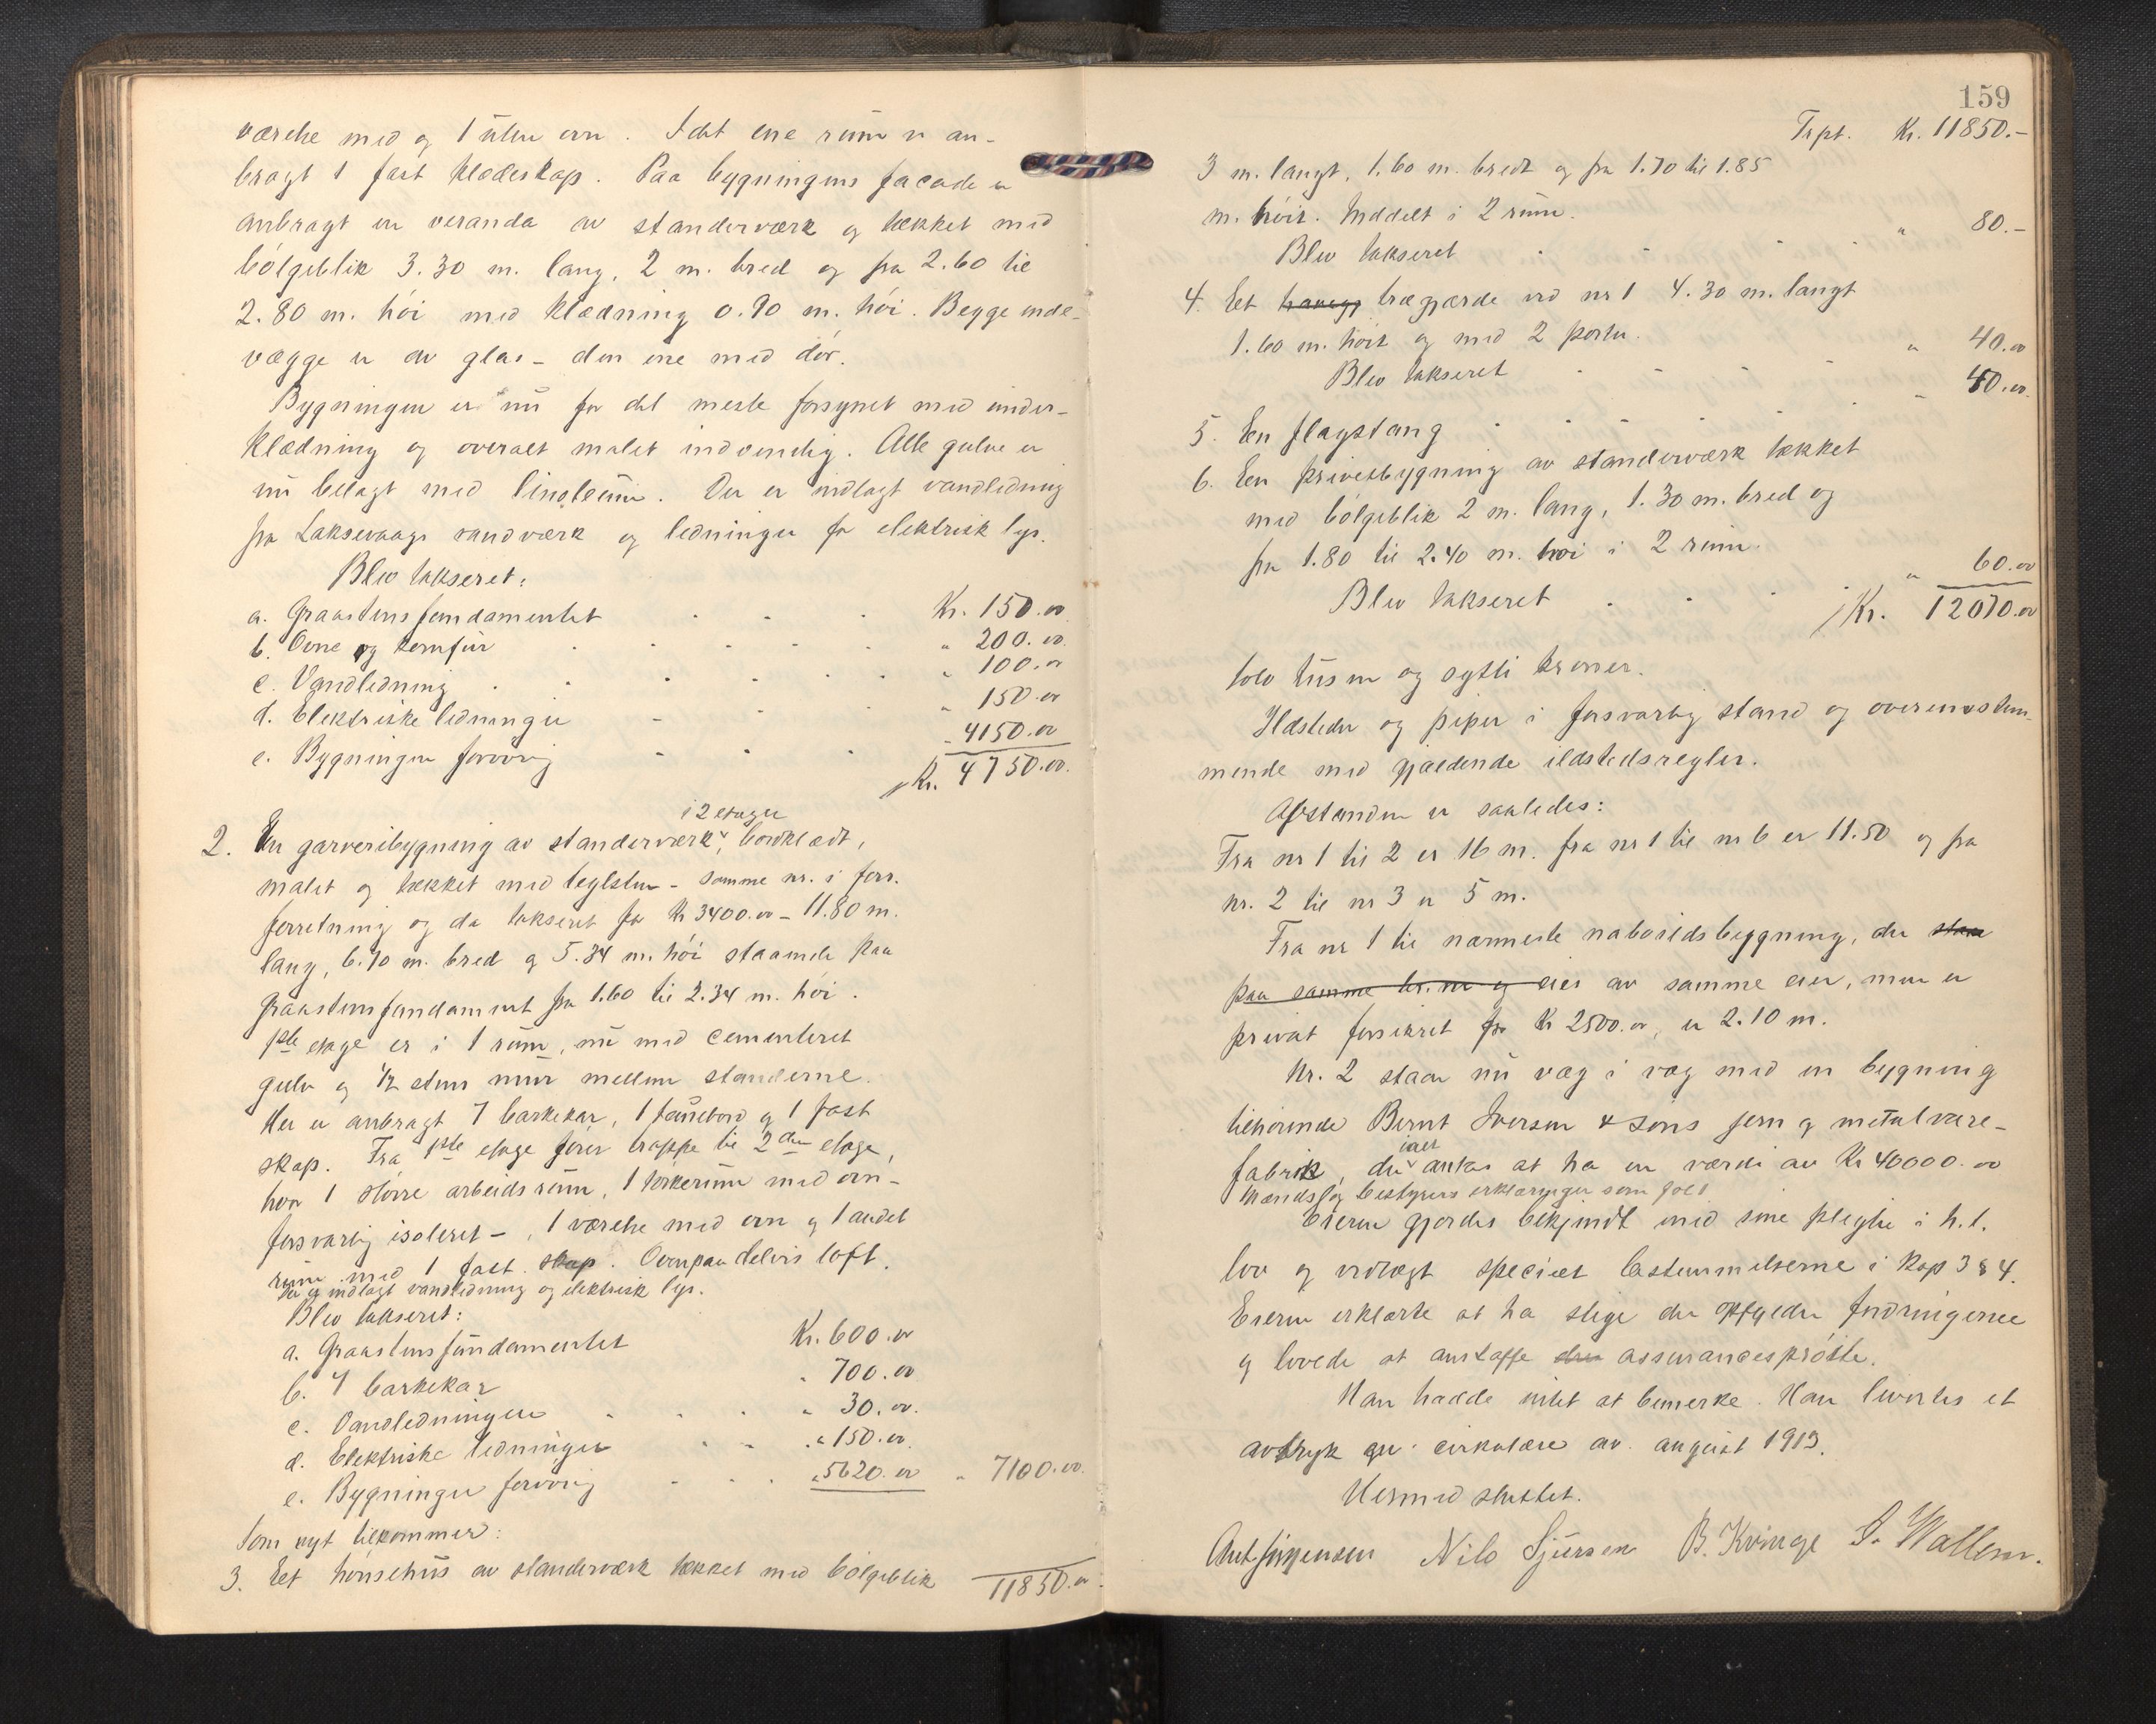 værelse med og 1 uten ovn. I det ene rum er an-
bragt 1 fast klædeskap. Paa bygningens facade er
anbragt en veranda av standerværk og tækket med
bølgeblik 3.30 m. lang, 2 m. bred og fra 2.60 til
2.80 m. høi med klædning 0.90 m. høi. Begge ende-
vægge er av glas - den ene med dør.
Bygningen er nu for det meste forsynet med under-
klædning og overalt malet indvendig. Alle gulve er
nu belagt med linoleum. Der er indlagt vandledning
fra Laksevaags vandværk og ledninger for elektrisk lys.
Blev takseret:
a. Graastensfundamentet Kr. 150.00
b. Ovne og komfur " 200.00
c. Vandledning " 100.00
d. Elektriske ledninger " 150.00
e. Bygningen forøvrig " 4150.00
Kr. 4750.00.
i 2 etager
2. En garveribygning av standerværk, bordklædt,
malet og tækket med teglsten - samme nr. i forr.
forretning og da takseret for Kr 3400.00 - 11.80 m.
lang, 6.10 m. bred og 5.34 m. høi staaende paa
graastensfundament fra 1.60 til 2.34 m. høi.
1ste etage er i 1 rum, nu med cementeret
gulv og 1/2 stens mur mellem standerne.
Her er anbragt 7 barkekar, 1 bord og 1 fast
skap. Fra 1ste etage fører trappe til 2den etage,
hvor 1 større arbeidsrum, 1 tørkerum med ovn -
forsvarlig isoleret -, 1 værelse med ovn og 1 andet
rum med 1 fast skap. Ovenpaa delvis loft.
Der er indlagt vandledning og elektrisk lys.
Blev takseret:
a. Graastensfundamentet Kr. 600.00
b. 7 barkekar " 700.00
c. Vandledningen " 30.00.
d. Elektriske ledninger " 150.00.
e. Bygningen forøvrig " 5620.00 " 7100.00.
Som nyt tilkommer:
3. Et hønsehus av standerværk tækket med bølgeblik 11850.00.
159
Trpt. Kr. 11850.-
3 m. langt, 1.60 m. bredt og fra 1.70 til 1.85
m. høit. Inddelt i 2 rum.
Blev takseret " 80.-
4. Et trægjærde ved nr 1 4.30 m. langt
1.60 m. høit og med 2 porter.
Blev takseret " 40.00
5. En flagstang " 40.00.
6. En privetbygning av standerværk tækket
med bølgeblik 2 m. lang, 1.30 m. bred og
fra 1.80 til 2.40 m. høi i 2 rum.
Blev takseret " 60.00
Kr. 12070.00
tolv tusen og sytti kroner.
Ildsteder og piper i forsvarlig stand og overensstem-
mende med gjældende ildstedsregler.
Avstanden er saaledes:
Fra nr 1 til 2 er 16 m. fra nr 1 til nr 6 er 11.50 og fra
nr. 2 til nr 3 er 5 m.
Fra nr 1 til nærmeste naboildsbygning, der staar
paa samme br. nr og eies av samme eier, men er
privat forsikret for Kr 2500.00, er 2.10 m.
Nr. 2 staar nu væg i væg med en bygning
tilhørende Bernt Iversen & Søns jern og metalvare-
ialt
fabrik, der antas at ha en værdi av Kr 40000.00
Mænds og bestyrers erklæringer som fol 1
Eieren gjordes bekjendt med sine pligter i h.t.
lov og vedlagt specielt bestemmelserne i Kap 3 & 4.
Eieren erklærte at ha stige der opfylder fordringerne
og lovede at anskaffe den assurancesprøite.
Han hadde intet at bemerke. Han leveres et
avtryk av cirkulære av august 1913.
Hermed sluttet.
Ant Jørgensen Nils Sjursen B. Kvinge S. Wallem.